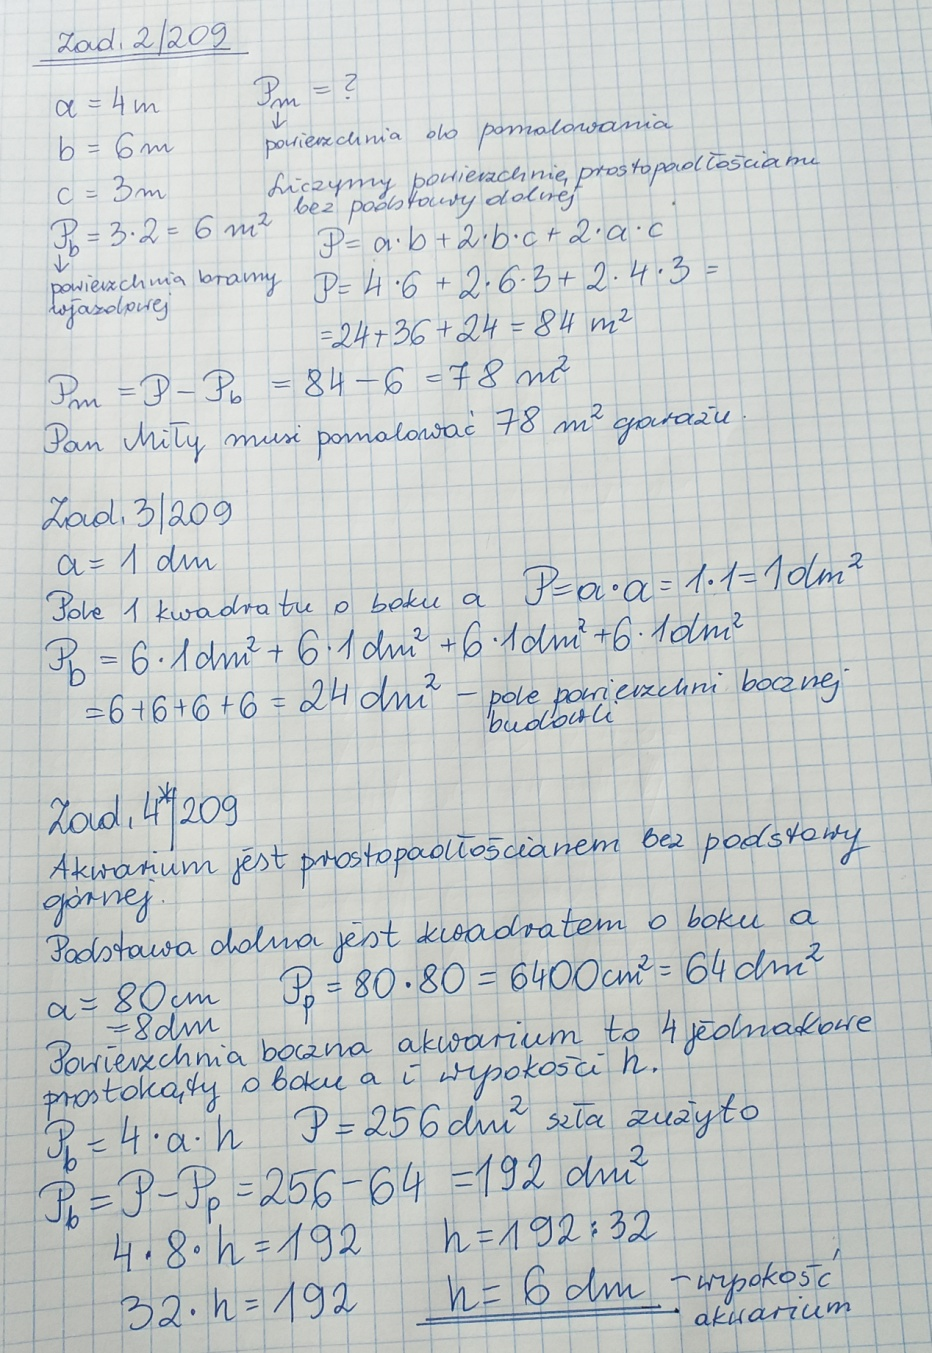 Zad. 2/209
a = 4m
Pm = ?
↓
b = 6m
powierzchnia do pomalowania
c = 3m
Liczymy powierzchnię prostopadłościanu
bez podstawy dolnej
Pb = 3·2 = 6 m²
↓
powierzchnia bramy
wjazdowej
P = a·b + 2·b·c + 2·a·c
P = 4·6 + 2·6·3 + 2·4·3 =
= 24 + 36 + 24 = 84 m²
Pm = P − Pb = 84 − 6 = 78 m²
Pan Miły musi pomalować 78 m² garażu.
Zad. 3/209
a = 1 dm
Pole 1 kwadratu o boku a P = a·a = 1·1 = 1dm²
Pb = 6·1dm² + 6·1dm² + 6·1dm² + 6·1dm²
= 6+6+6+6 = 24 dm² – pole powierzchni bocznej
budowli
Zad. 4*/209
Akwarium jest prostopadłościanem bez podstawy
górnej.
Podstawa dolna jest kwadratem o boku a
a = 80cm Pp = 80·80 = 6400cm² = 64dm²
= 8dm
Powierzchnia boczna akwarium to 4 jednakowe
prostokąty o boku a i wysokości h.
Pb = 4·a·h P = 256dm² szła zużyto
Pb = P − Pp = 256 − 64 = 192 dm²
4·8·h = 192 h = 192 : 32
32·h = 192 h = 6 dm – wysokość
akwarium